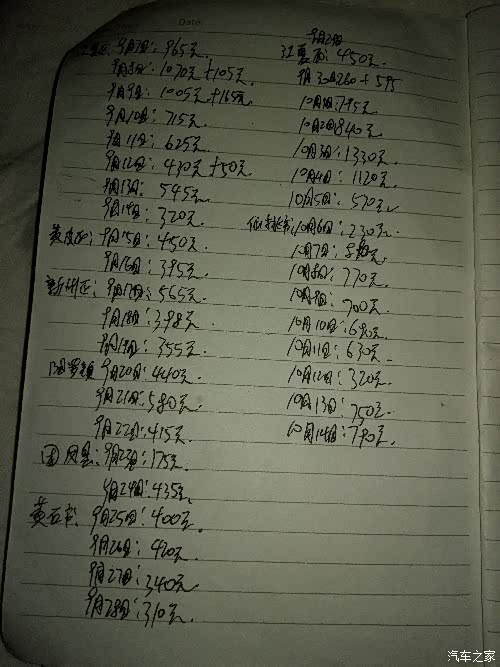 Date.
江夏区:9月7日:965元
9月8日:1070元+105元
9月9日:1005元+165元
9月10日:715元
9月11日:625元
9月12日:430元+50元
9月13日:545元
9月14日:320元
黄陂区:9月15日:450元.
9月16日:395元.
新洲区:9月17日:565元.
9月18日:398元.
9月19日:355元.
阳逻镇 9月20日:440元.
9月21日:580元.
9月22日:415元.
团风县:9月23日:175元.
9月24日:435元.
黄石市.9月25日:400元.
9月26日:420元.
9月27日:340元
9月28日:310元.
9月29日
江夏区:450元.
9月30日260+595
10月1日:795元.
10月2日840元.
10月3日:1330元.
10月4日:1120元.
10月5日:570元
10月6日:230元.
10月7日:
10月8日:770元.
10月9日:700元.
10月10日:690元.
10月11日:630元.
10月12日:320元.
10月13日:750元.
10月14日:790元.
汽车之家